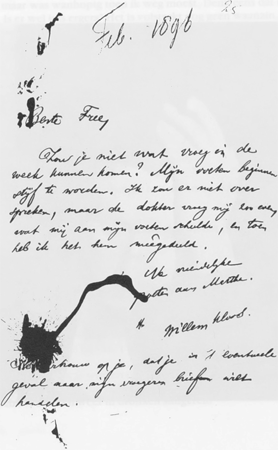 25
Feb. 1896
Beste Frey
Zou je niet wat vroeg in de
week kunnen komen? Mijn voeten beginnen
stijf te worden. Ik zou er niet over
spreken, maar de dokter vroeg mij zoo even,
wat mij aan mijn voeten scheelde, en toen
heb ik het hem meegedeeld.
Na vriendelijke
groeten aan Martha.
t. t.
Willem Kloos.
vertrouw op je, dat je in 't eventueele
geval naar mijn vroegeren brief wilt
handelen.